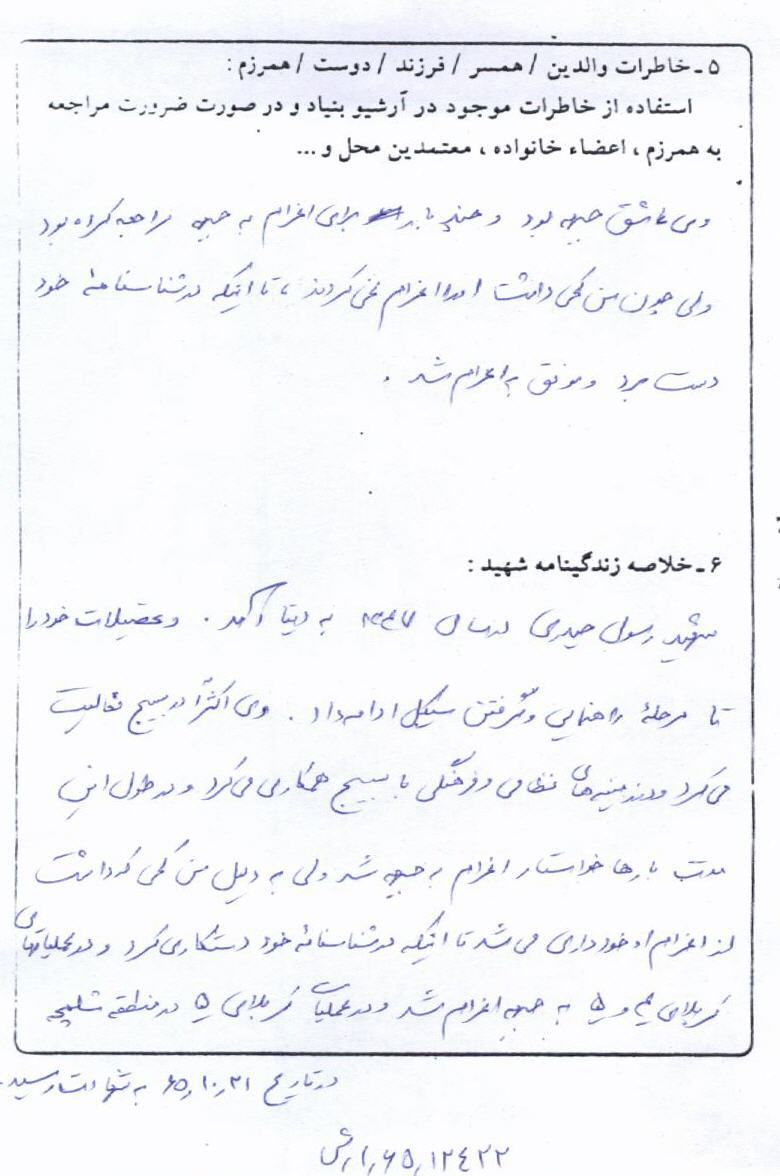 ۵ ـ خاطرات والدین / همسر / فرزند / دوست / همرزم :
استفاده از خاطرات موجود در آرشیو بنیاد و در صورت ضرورت مراجعه
به همرزم ، اعضاء خانواده ، معتمدین محل و ...
وی عاشق جبهه بود و چند بار برای اعزام به جبهه مراجعه کرده بود
ولی چون سن کمی داشت او را اعزام نمی کردند ، تا اینکه در شناسنامهٔ خود
دست برد و موفق به اعزام شد .
۶ ـ خلاصه زندگینامه شهید :
شهید رسول حیدری در سال به دنیا آمد . و تحصیلات خود را
تا مرحلهٔ راهنمایی و گرفتن سیکل ادامه داد . وی اکثراً در بسیج فعالیت
می کرد و در زمینه های نظامی و فرهنگی با بسیج همکاری می کرد و در طول این
مدت بارها خواستار اعزام به جبهه شد ولی به دلیل سن کمی که داشت
از اعزام او خودداری می شد تا اینکه در شناسنامهٔ خود دستکاری کرد و در عملیاتهای
کربلای ۴ و ۵ به جبهه اعزام شد و در عملیات کربلای ۵ در منطقه شلمچه
در تاریخ ۶۵٫۱۰٫۲۱ به شهادت رسید .
۱۲۴۲۲٫۶۵٫۱٫ش